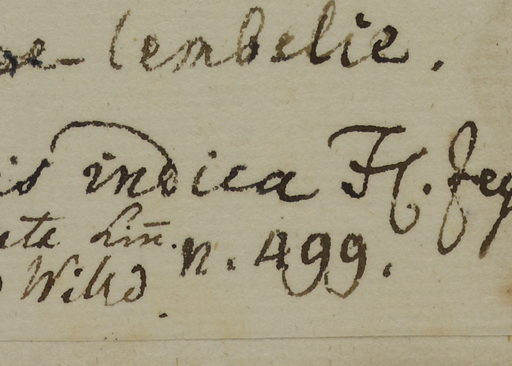 oe- lembelie.
is indica Fl. Zey
ata Liñ.
n. 499.
Willd.